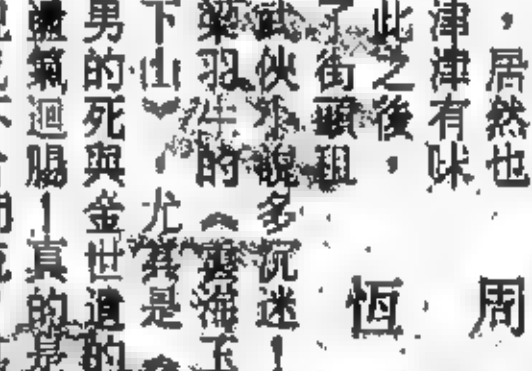 ，居然也
津津有味
此之後，
了街頭租
武俠小說多沉迷！
梁羽生的《雲海玉
下山》，尤其是《
男的死與金世遺的
迴腸！真的是
周
恆